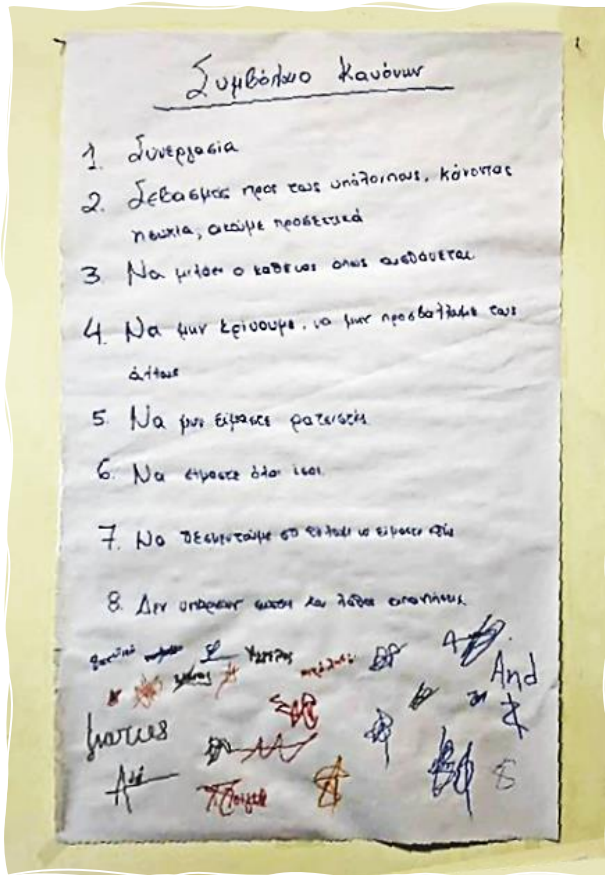 Συμβόλαιο Κανόνων
1. Συνεργασία
2. Σεβασμός προς τους υπόλοιπους, κάνοντας
ησυχία, ακούμε προσεκτικά
3. Να μιλάει ο καθένας όπως αισθάνεται
4. Να μην κρίνουμε, να μην προσβάλλουμε τους
άλλους
5. Να μην είμαστε ρατσιστές
6. Να είμαστε όλοι ίσοι
7. Να δεσμευτούμε
8. Δεν υπάρχουν σωστές και λάθος απαντήσεις
And